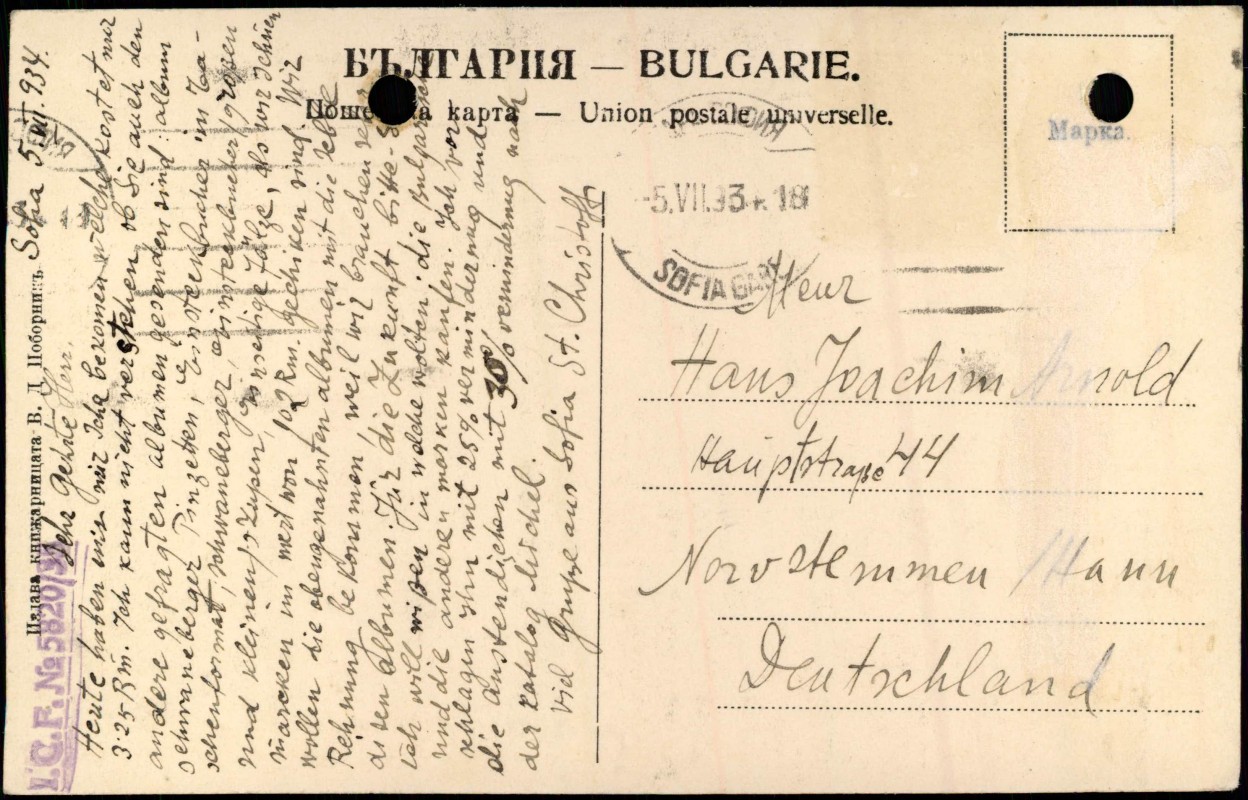 БЪЛГАРИЯ — BULGARIE.
карта — Union postale universelle.
Марка.
-5.VII.93 18
SOFIA GARE
Издава книжарницата В. Д. Поборникъ.
I.C.E. № 5820/3
Sofia 5.VII.934.
Sehr Gehrte Herr.
Heute haben wir Ihre bekomen welche kostet nur
3·25 Rm. Ich kann nicht verstehen, ob Sie auch den
andere gefragten albumen gesendet sind: album
schwaneberger, Pinzetten, Einsteckbücher in Ta-
schenformat, schwaneberger, einsteckbucher grosen
und kleinen, Lupen, sonstige Fälze, als wir Ihnen
marcken im wert von 102 Rm. geschiken sind. Wir
wollen die obengenahnten albumen mit die lebe
Rehnung bekommen, weil wir brauchen
disen albumen. Für die Zukunft bitte
Ich will wißen in welche wolten die bulgar
und die anderen marken kaufen. Ich vor
schlagen Ihn mit 25% vermindernug und
die austendichen mit 30% vermindernug nach
der katalog Michel.
Viel Grupe aus Sofia St. Christoff
Herr
Hans Joachim Arnold
Hauptstraße 44
Norstemmen /Hann
Deutschland